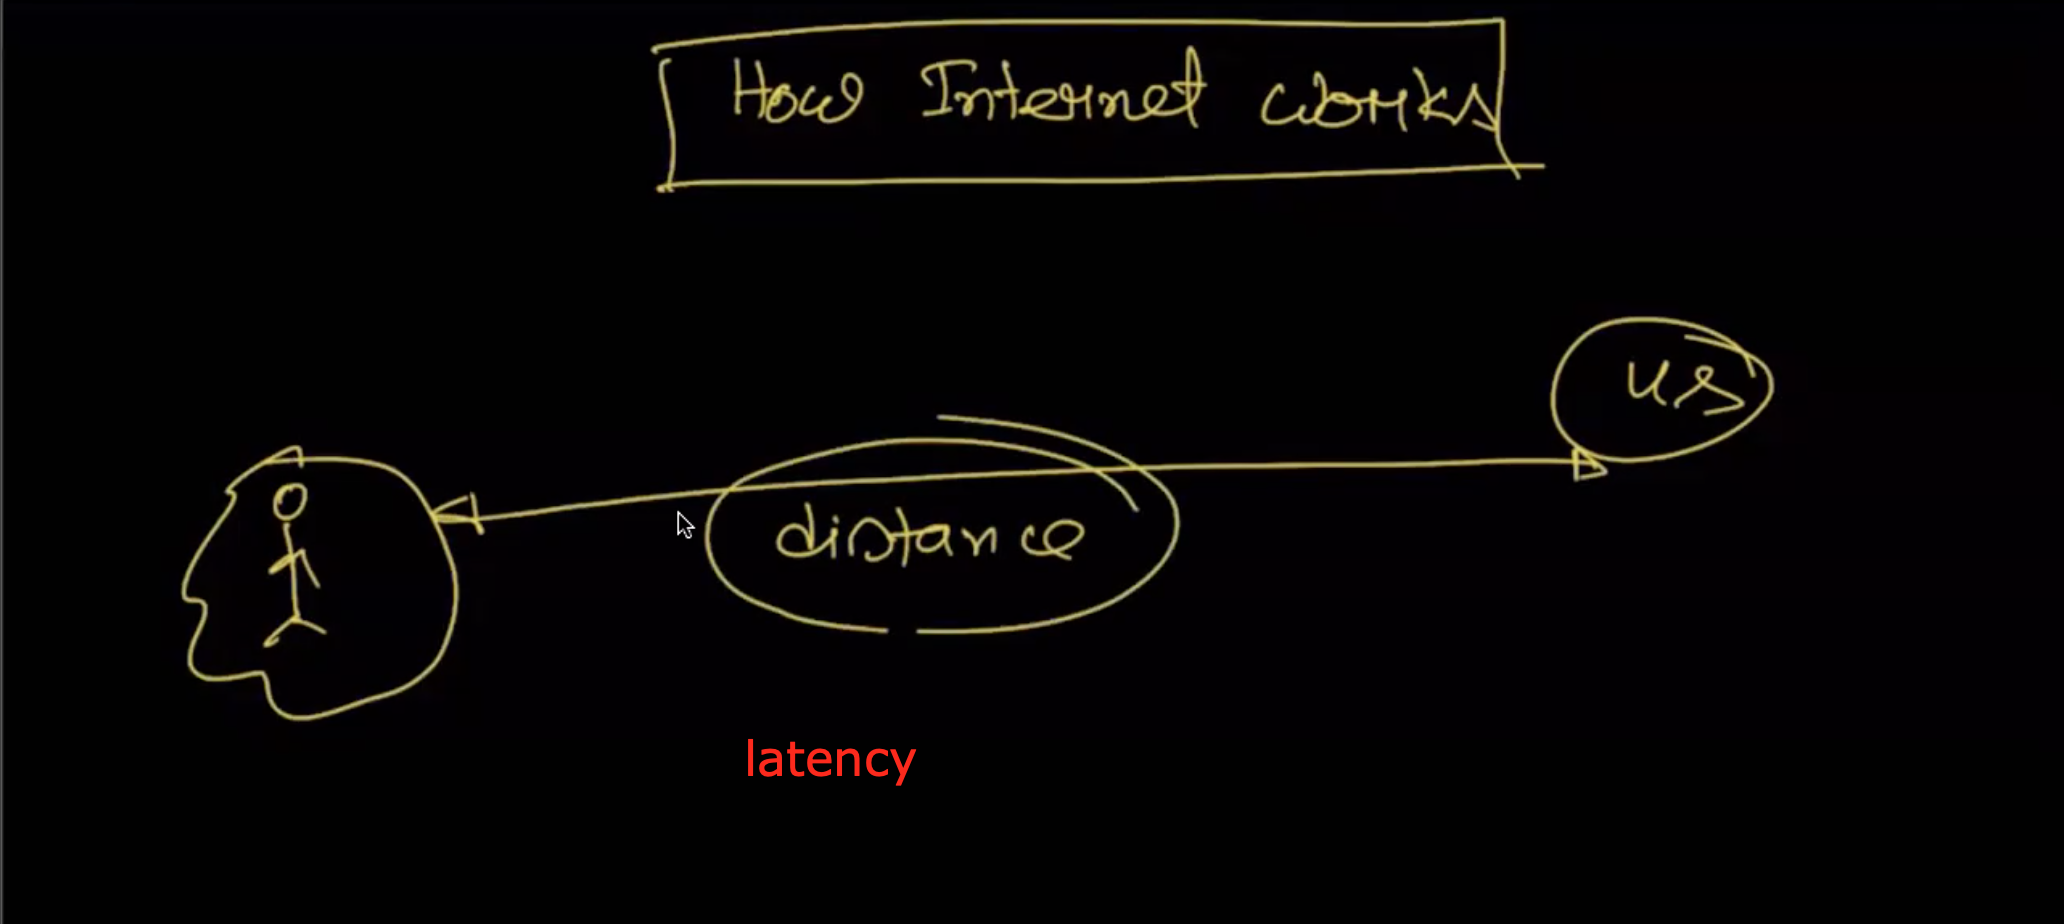 How Internet works
us
distance
latency